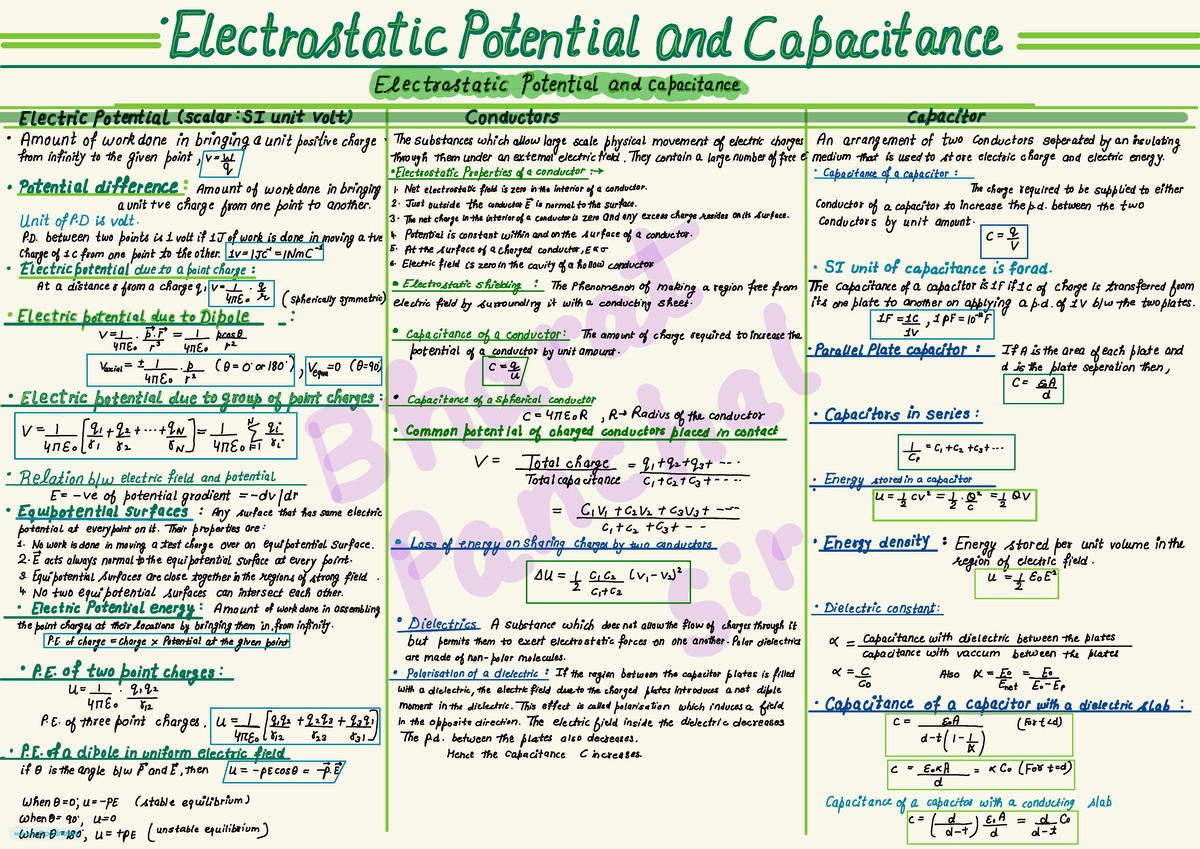 Electrostatic Potential and Capacitance
Electrastatic Potential and capacitance
Electric Potential (scalar: SI unit volt)
• Amount of work done in bringing a unit positive charge
from infinity to the given point, V = W/q
• Potential difference: Amount of workdone in bringing
a unit +ve charge from one point to another.
Unit of P.D is volt.
P.D. between two points is 1 volt if 1J of work is done in moving a +ve
charge of 1C from one point to the other. 1V = 1JC⁻¹ = 1NmC⁻¹
• Electric potential due to a point charge:
At a distance r from a charge q, V = 1/4πε₀ · q/r (spherically symmetric)
• Electric potential due to Dipole :
V = 1/4πε₀ · p⃗.r⃗/r³ = 1/4πε₀ pcosθ/r²
Vaxial = ± 1/4πε₀ · p/r² (θ = 0° or 180°), Vequi = 0 (θ=90°)
• Electric potential due to group of point charges:
V = 1/4πε₀ [q₁/r₁ + q₂/r₂ + ··· + qN/rN] = 1/4πε₀ Σ(i=1 to N) qi/ri
• Relation b/w electric field and potential
E = -ve of potential gradient = -dv/dr
• Equipotential surfaces : Any surface that has same electric
potential at every point on it. Their properties are:
1. No work is done in moving a test charge over an equipotential surface.
2. E⃗ acts always normal to the equipotential surface at every point.
3. Equipotential surfaces are close together in the regions of strong field.
4. No two equipotential surfaces can intersect each other.
• Electric Potential energy: Amount of work done in assembling
the point charges at their locations by bringing them in, from infinity.
P.E of charge = charge × Potential at the given point
• P.E. of two point charges:
U = 1/4πε₀ · q₁q₂/r₁₂
P.E. of three point charges. U = 1/4πε₀ [q₁q₂/r₁₂ + q₂q₃/r₂₃ + q₃q₁/r₃₁]
• P.E. of a dipole in uniform electric field
if θ is the angle b/w P⃗ and E⃗, then U = -pEcosθ = -p⃗.E⃗
When θ = 0°, u = -PE (stable equilibrium)
When θ = 90°, u = 0
When θ = 180°, u = +PE (unstable equilibrium)
Conductors
The substances which allow large scale physical movement of electric charges
through them under an external electric field. They contain a large number of free e⁻
• Electrostatic Properties of a conductor :→
1. Net electrostatic field is zero in the interior of a conductor.
2. Just outside the conductor E⃗ is normal to the surface.
3. The net charge in the interior of a conductor is zero and any excess charge resides on its surface.
4. Potential is constant within and on the surface of a conductor.
5. At the surface of a charged conductor, E ∝ σ
6. Electric field is zero in the cavity of a hollow conductor
• Electrostatic Shielding : The Phenomenon of making a region free from
electric field by surrounding it with a conducting sheet.
• Capacitance of a conductor: The amount of charge required to increase the
potential of a conductor by unit amount.
C = q/u
• Capacitance of a spherical conductor
C = 4πε₀R , R → Radius of the conductor
• Common potential of charged conductors placed in contact
V = Total charge/Total capacitance = q₁+q₂+q₃+····/C₁+C₂+C₃+···
= C₁V₁ + C₂V₂ + C₃V₃ + ---/C₁+C₂+C₃+--
• Loss of energy on sharing charges by two conductors
ΔU = 1/2 C₁C₂/C₁+C₂ (V₁-V₂)²
• Dielectrics A substance which does not allow the flow of charges through it
but permits them to exert electrostatic forces on one another. Polar dielectrics
are made of non-polar molecules.
• Polarisation of a dielectric : If the region between the capacitor plates is filled
with a dielectric, the electric field due to the charged plates introduces a net diple
moment in the dielectric. This effect is called polarisation which induces a field
in the opposite direction. The electric field inside the dielectric decreases
The p.d. between the plates also decreases.
Hence the capacitance C increases.
Capacitor
An arrangement of two conductors seperated by an insulating
medium that is used to store electric charge and electric energy.
• Capacitance of a capacitor :
The charge required to be supplied to either
conductor of a capacitor to increase the p.d. between the two
conductors by unit amount.
C = q/V
• SI unit of capacitance is farad.
The capacitance of a capacitor is 1F if 1C of charge is transferred from
its one plate to another on applying a p.d. of 1V b/w the two plates.
1F = 1C/1V , 1PF = 10⁻¹²F
• Parallel Plate capacitor : If A is the area of each plate and
d is the plate seperation then,
C = ε₀A/d
• Capacitors in series :
1/Cp = C₁+C₂+C₃+···
• Energy stored in a capacitor
U = 1/2 CV² = 1/2 · Q²/C = 1/2 QV
• Energy density : Energy stored per unit volume in the
region of electric field.
u = 1/2 ε₀E²
• Dielectric constant:
α = Capacitance with dielectric between the plates/Capacitance with vaccum between the plates
α = C/C₀ Also K = E₀/Enet = E₀/E₀-Ep
• Capacitance of a capacitor with a dielectric slab :
C = ε₀A/d-t(1-1/K) (For t<d)
C = ε₀KA/d = KC₀ (For t=d)
Capacitance of a capacitor with a conducting slab
C = (d/d-t) ε₀A/d = d/d-t C₀
Bharat
Panchal
Sir